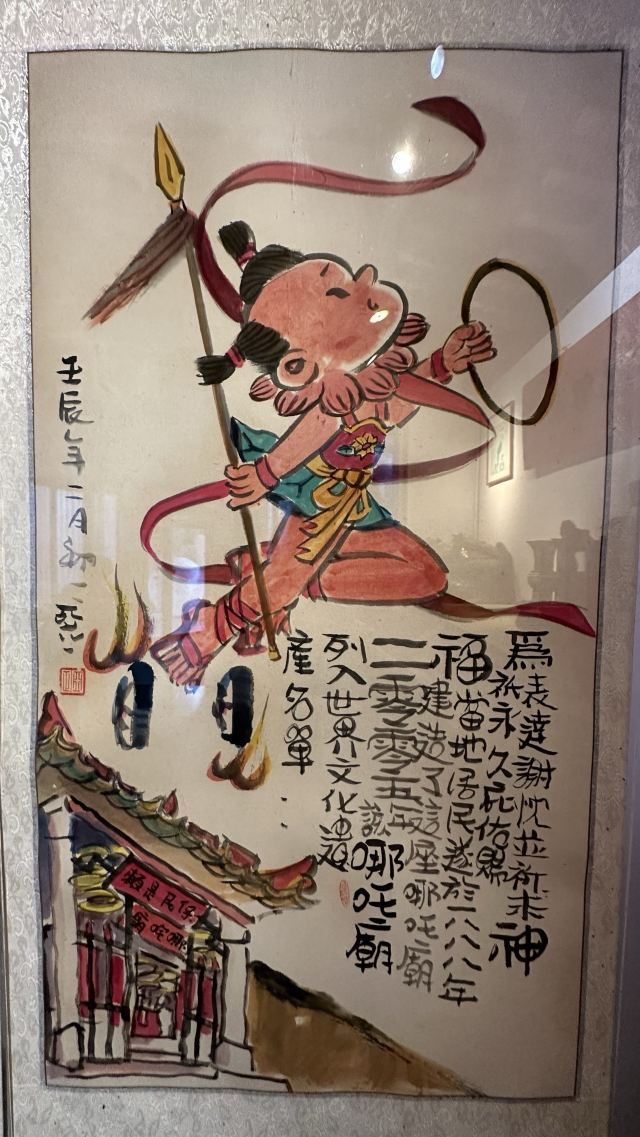 為表達謝忱並祈求神
祇永久庇佑賜
福當地居民遂於一八八八年
建造了這座哪吒廟
二零零五年該哪吒廟
列入世界文化遺
產名單
壬辰年二月初一
保民是賴
哪咤廟